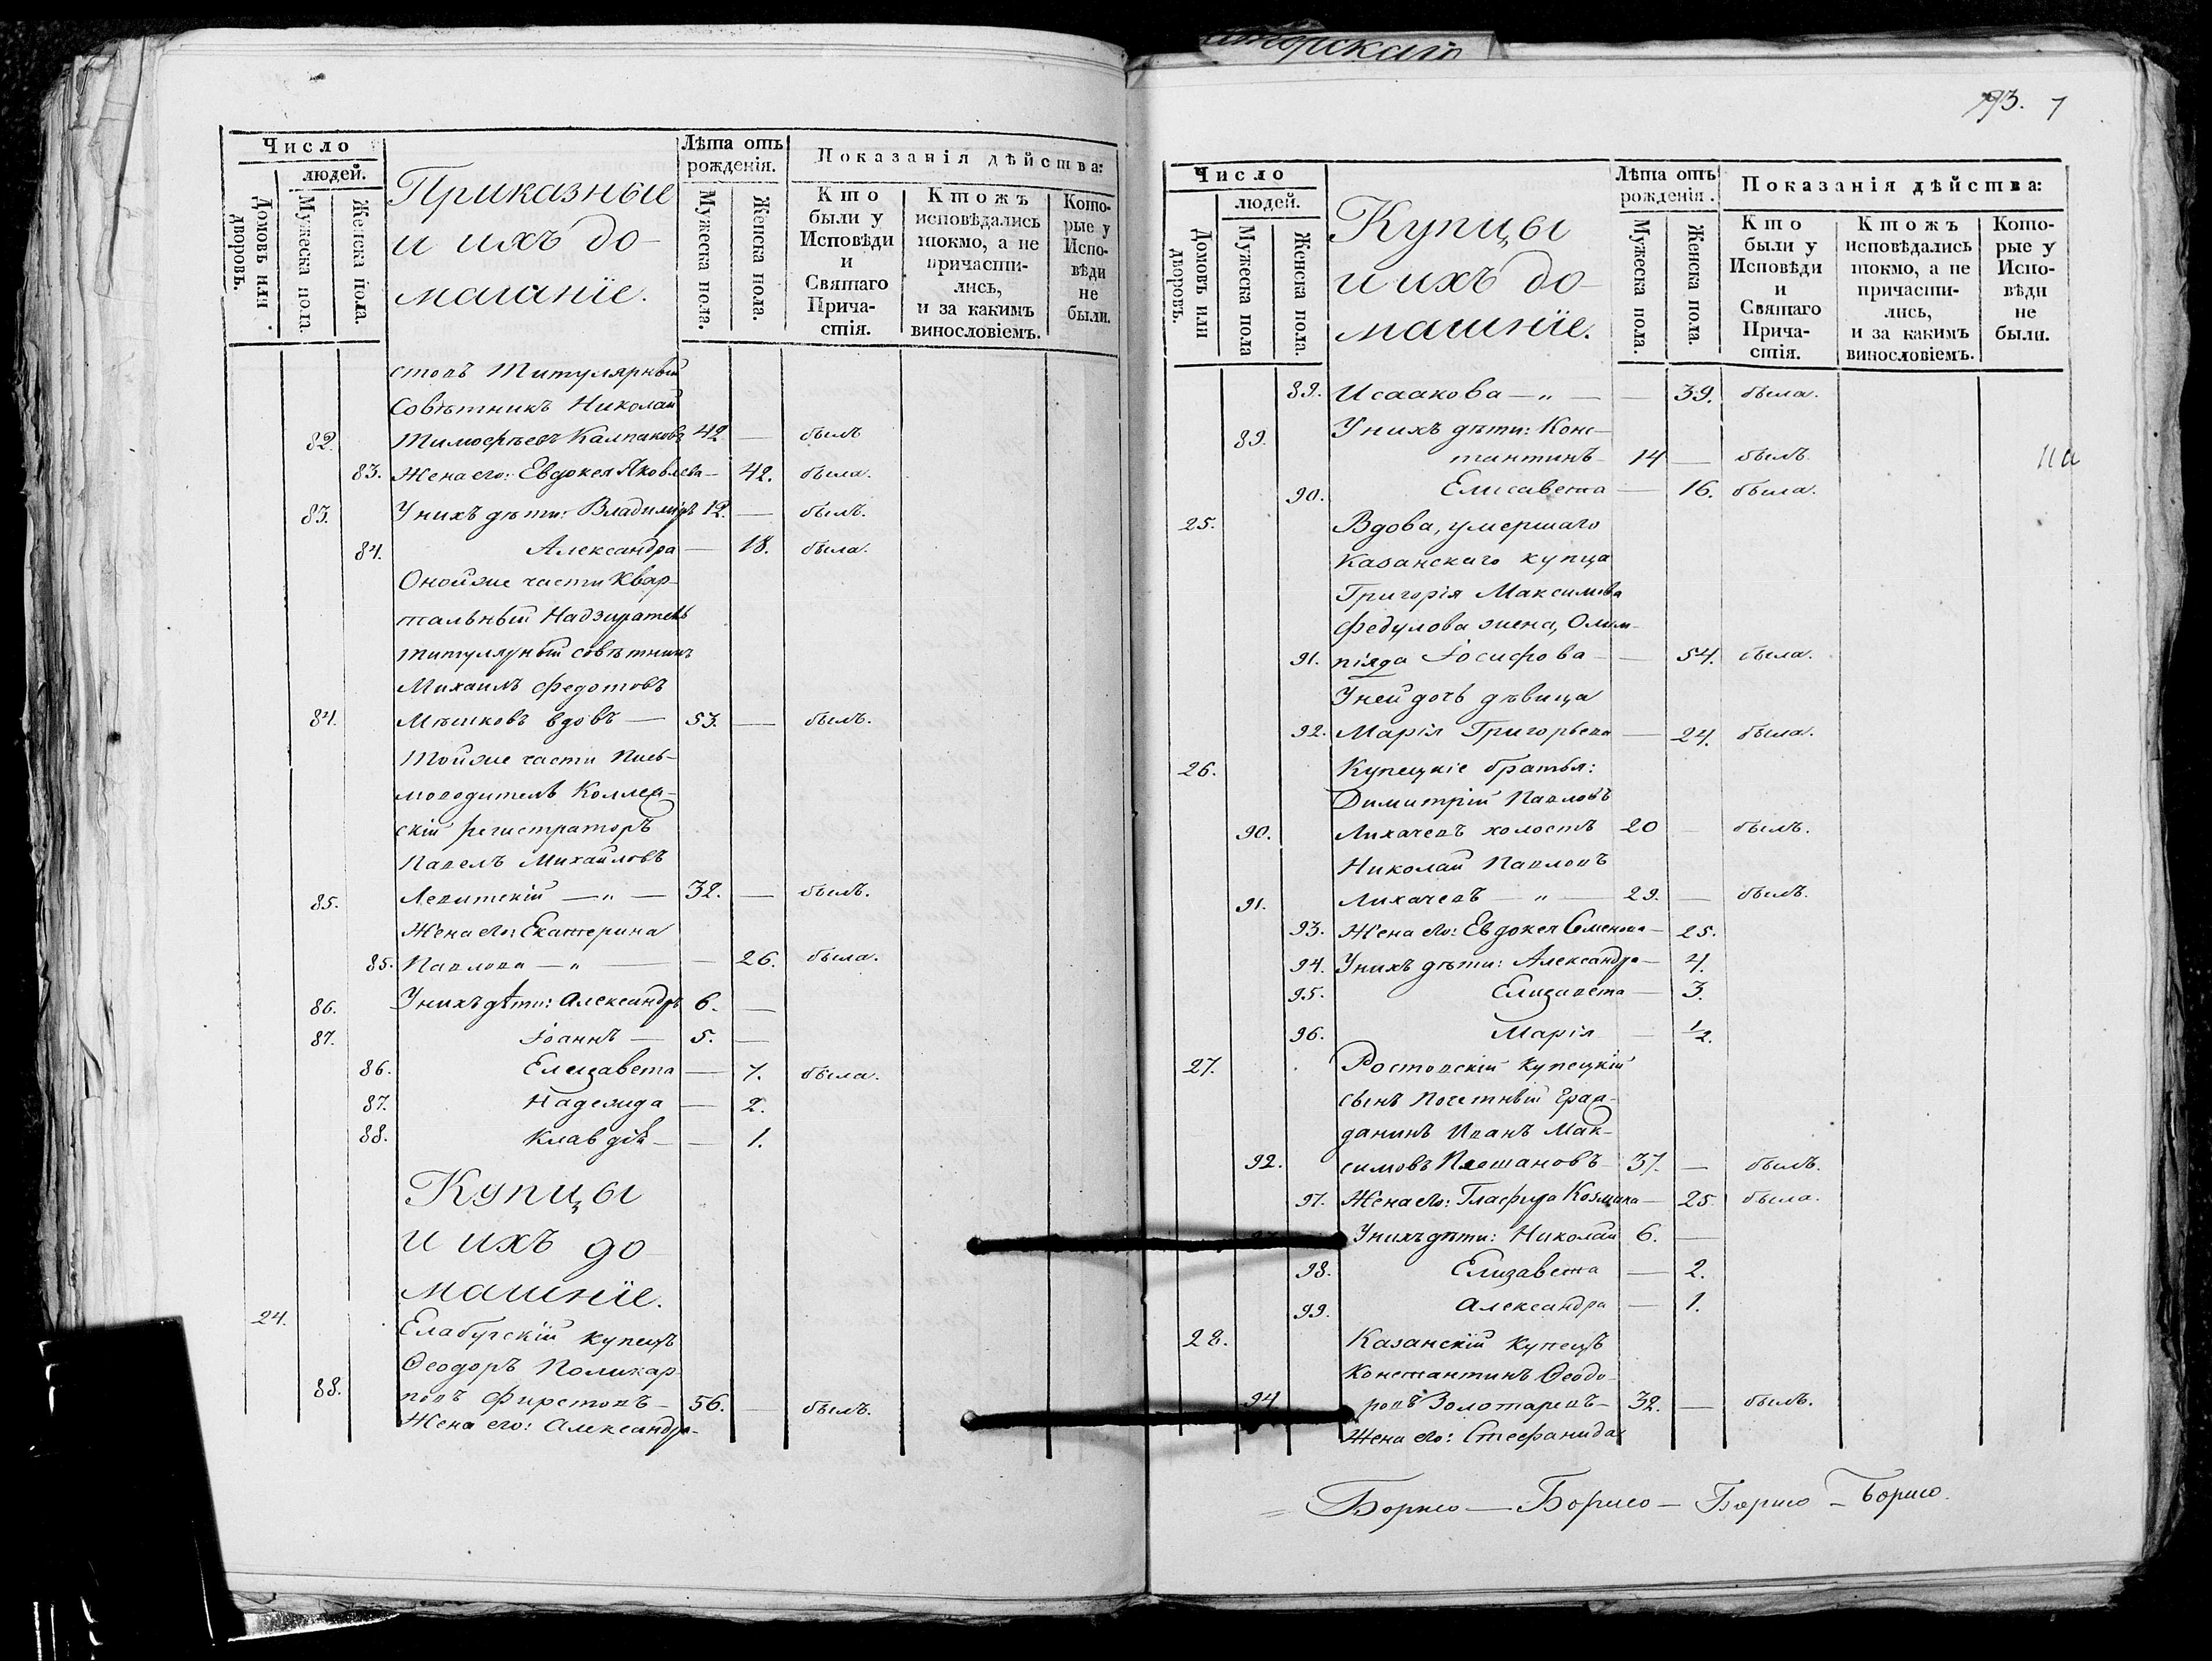 Число
людей.
Домовъ или дворовъ.
Мужеска пола.
Женска пола.
Приказные
и ихъ до-
машніе.
Лѣта отъ
рожденія.
Мужеска пола.
Женска пола.
Показанія дѣйства:
Кто
были у
Исповѣди
и
Святаго
Прича-
стія.
Ктожъ
исповѣдались
токмо, а не
причасти-
лись,
и за какимъ
винословіемъ.
Кото-
рые у
Испо-
вѣди
не
были.
стовъ Титулярный
Совѣтникъ Николай
82. Тимофѣевъ Калпаковъ 42 — былъ
83. Жена его: Евдокея Яковлева — 42. была.
83. У нихъ дѣти: Владиміръ 12. — былъ.
84. Александра — 18. была.
Оной же части Квар-
тальный Надзиратель
титулярный совѣтникъ
Михаилъ Федотовъ
84. Мѣшковъ вдовъ — 53. — былъ.
Той же части Пись-
моводитель Коллеж-
скій регистраторъ
Павелъ Михайловъ
85. Левитскій — „ — 32. — былъ.
Жена его: Екатерина
85. Павлова — „ — — 26. была.
86. У нихъ дѣти: Александръ 6. —
87. Іоаннъ — 5. —
86. Елизавета — 7. была.
87. Надежда — 2.
88. Клавдія — — 1.
Купцы
и ихъ до
машніе.
24. Елабугскій купецъ
Ѳеодоръ Поликар-
88. повъ Фирстовъ — 56. — былъ.
Жена его: Александра-
аторскаго
193. 7
Число
людей.
Домовъ или дворовъ.
Мужеска пола
Женска пола.
Купцы
и ихъ до-
машніе.
Лѣта отъ
рожденія.
Мужеска пола.
Женска пола.
Показанія дѣйства:
Кто
были у
Исповѣди
и
Святаго
Прича-
стія.
Ктожъ
исповѣдались
токмо, а не
причасти-
лись,
и за какимъ
винословіемъ.
Кото-
рые у
Испо-
вѣди
не
были.
89. Исаакова — „ — — 39. была.
89. У нихъ дѣти: Конс-
тантинъ — 14 — былъ.
90. Елисавета — 16. была.
25. Вдова, умершаго
Казанскаго купца
Григорія Максимова
Федулова жена, Олим-
91. піяда Іосифова — — 54. была.
У ней дочь дѣвица
92. Марія Григорьева — 24. была.
26. Купецкіе братья:
Димитрій Павловъ
90. Лихачевъ холостъ 20 — былъ.
Николай Павловъ
91. Лихачевъ — „ — 29. — былъ.
93. Жена его: Евдокея Семенова — 25.
94. У нихъ дѣти: Александра — 4.
95. Елизавета — 3.
96. Марія — 1/2.
27. Ростовскій купецкій
сынъ Почетный Граж-
данинъ Иванъ Мак-
92. симовъ Плешановъ — 37. — былъ.
97. Жена его: Глафира Козмина — 25 была.
У нихъ дѣти: Николай 6. —
98. Елизавета — 2.
99. Александра — 1.
28. Казанскій купецъ
Константинъ Ѳеодо-
94 ровъ Золотаревъ — 32. — былъ.
Жена его: Стефанида
= Борисо — Борисо — Борисо — Борисо.